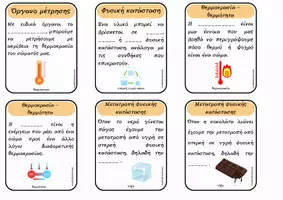 Όργανο μέτρησης
Με ειδικό όργανο το
............ μπορούμε
να μετρήσουμε με
ακρίβεια τη θερμοκρασία
του σώματός μας.
θερμόμετρο
Φυσική κατάσταση
Ένα υλικό μπορεί να
βρίσκεται σε ............,
............ ή ............ φυσική
κατάσταση, ανάλογα με
τις συνθήκες που
επικρατούν.
Θερμοκρασία –
θερμότητα
Η ............ είναι
μια έννοια που μας
βοηθά να περιγράψουμε
πόσο θερμό ή ψυχρό
είναι ένα σώμα.
Θερμοκρασία –
θερμότητα
Η ............ είναι η
ενέργεια που ρέει από ένα
σώμα προς ένα άλλο
λόγω διαφορετικής
θερμοκρασίας.
θερμότητα
Μετατροπή φυσικής
κατάστασης
Όταν το νερό γίνεται
πάγος έχουμε την
μετατροπή από υγρή σε
στερεή φυσική
κατάσταση, δηλαδή την
............
πήξη
Μετατροπή φυσικής
κατάστασης
Όταν η σοκολάτα λιώνει
έχουμε την μετατροπή από
στερεή σε υγρή φυσική
κατάσταση, δηλαδή την
............
τήξη